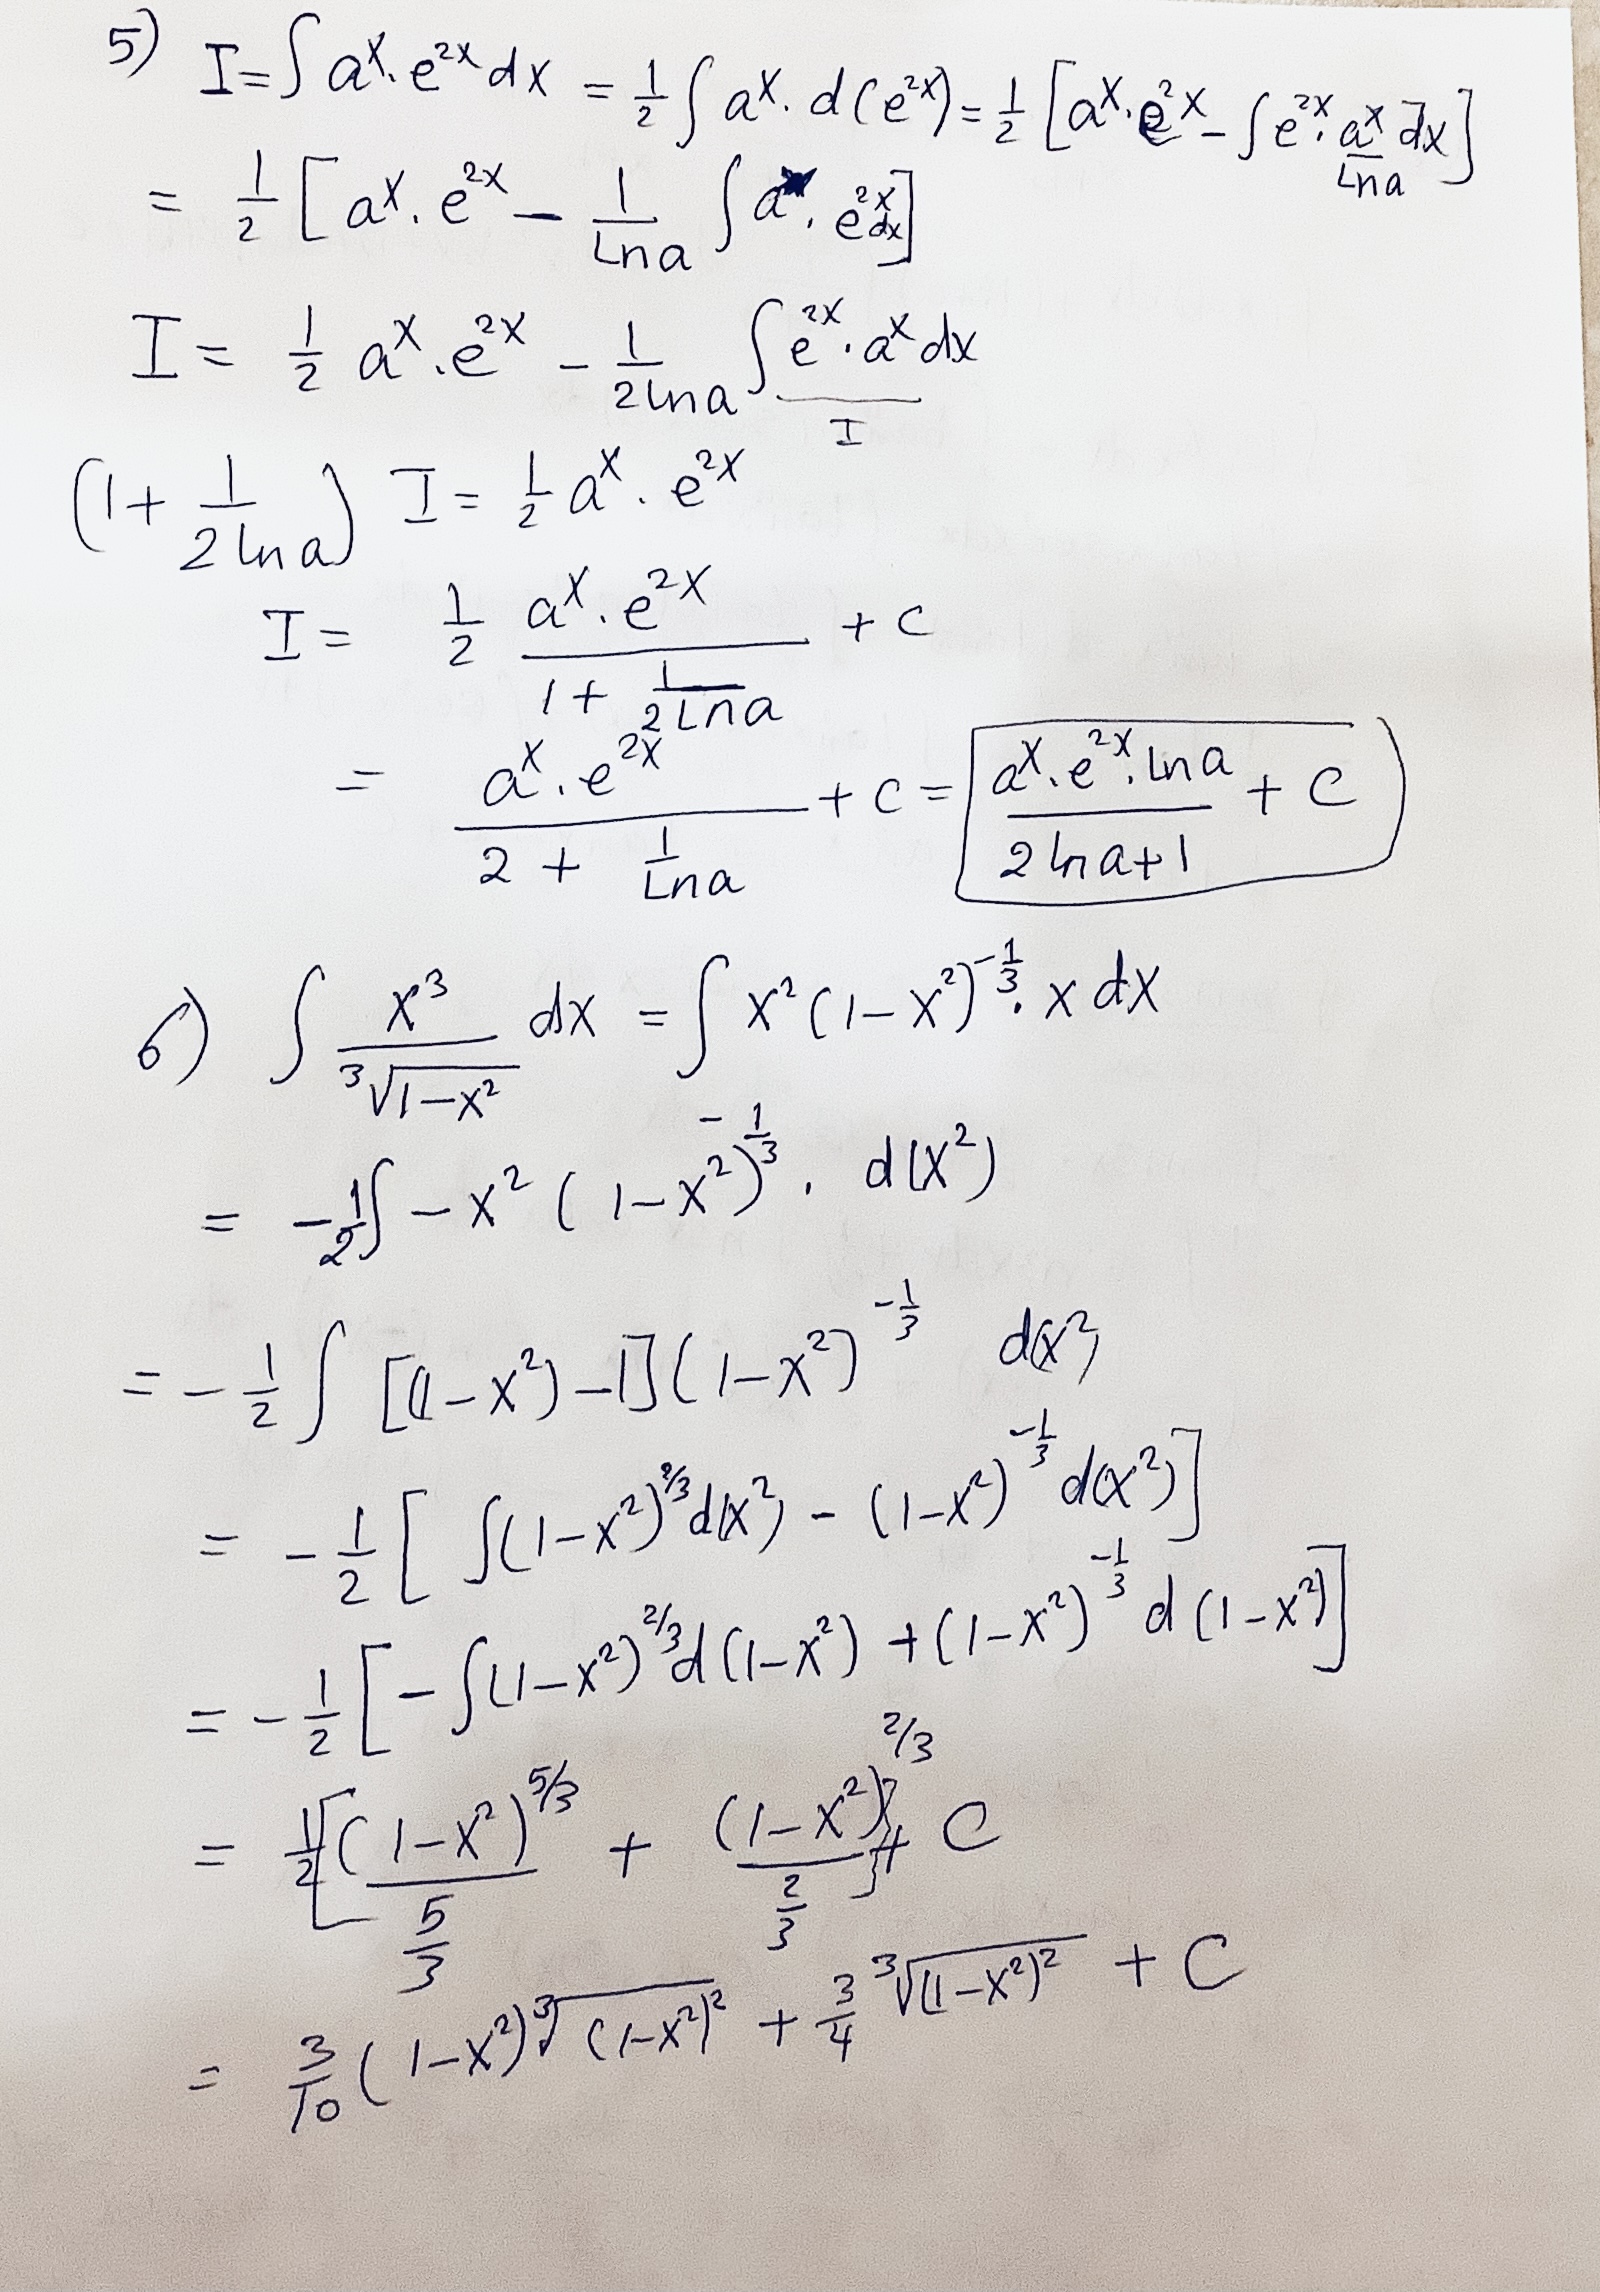 5) I = ∫ a^x . e^{2x} dx = 1/2 ∫ a^x . d(e^{2x}) = 1/2 [a^x . e^{2x} - ∫ e^{2x} . a^x/Lna dx]
= 1/2 [a^x . e^{2x} - 1/Lna ∫ a^x . e^{2x} dx]
I = 1/2 a^x . e^{2x} - 1/(2lna) ∫ e^{2x} . a^x dx
I
(1 + 1/(2lna)) I = 1/2 a^x . e^{2x}
I = 1/2 (a^x . e^{2x})/(1 + 1/(2Lna)) + c
= (a^x . e^{2x})/(2 + 1/Lna) + c = (a^x . e^{2x} . lna)/(2lna+1) + c
6) ∫ x^3/∛(1-x^2) dx = ∫ x^2 (1-x^2)^{-1/3} . x dx
= -1/2 ∫ -x^2 (1-x^2)^{-1/3} . d(x^2)
= -1/2 ∫ [(1-x^2)-1] (1-x^2)^{-1/3} d(x^2)
= -1/2 [∫(1-x^2)^{2/3} d(x^2) - (1-x^2)^{-1/3} d(x^2)]
= -1/2 [-∫(1-x^2)^{2/3} d(1-x^2) + (1-x^2)^{-1/3} d(1-x^2)]
= 1/2 [(1-x^2)^{5/3}/(5/3) + (1-x^2)^{2/3}/(2/3)] + C
= 3/10 (1-x^2) ∛((1-x^2)^2) + 3/4 ∛((1-x^2)^2) + C